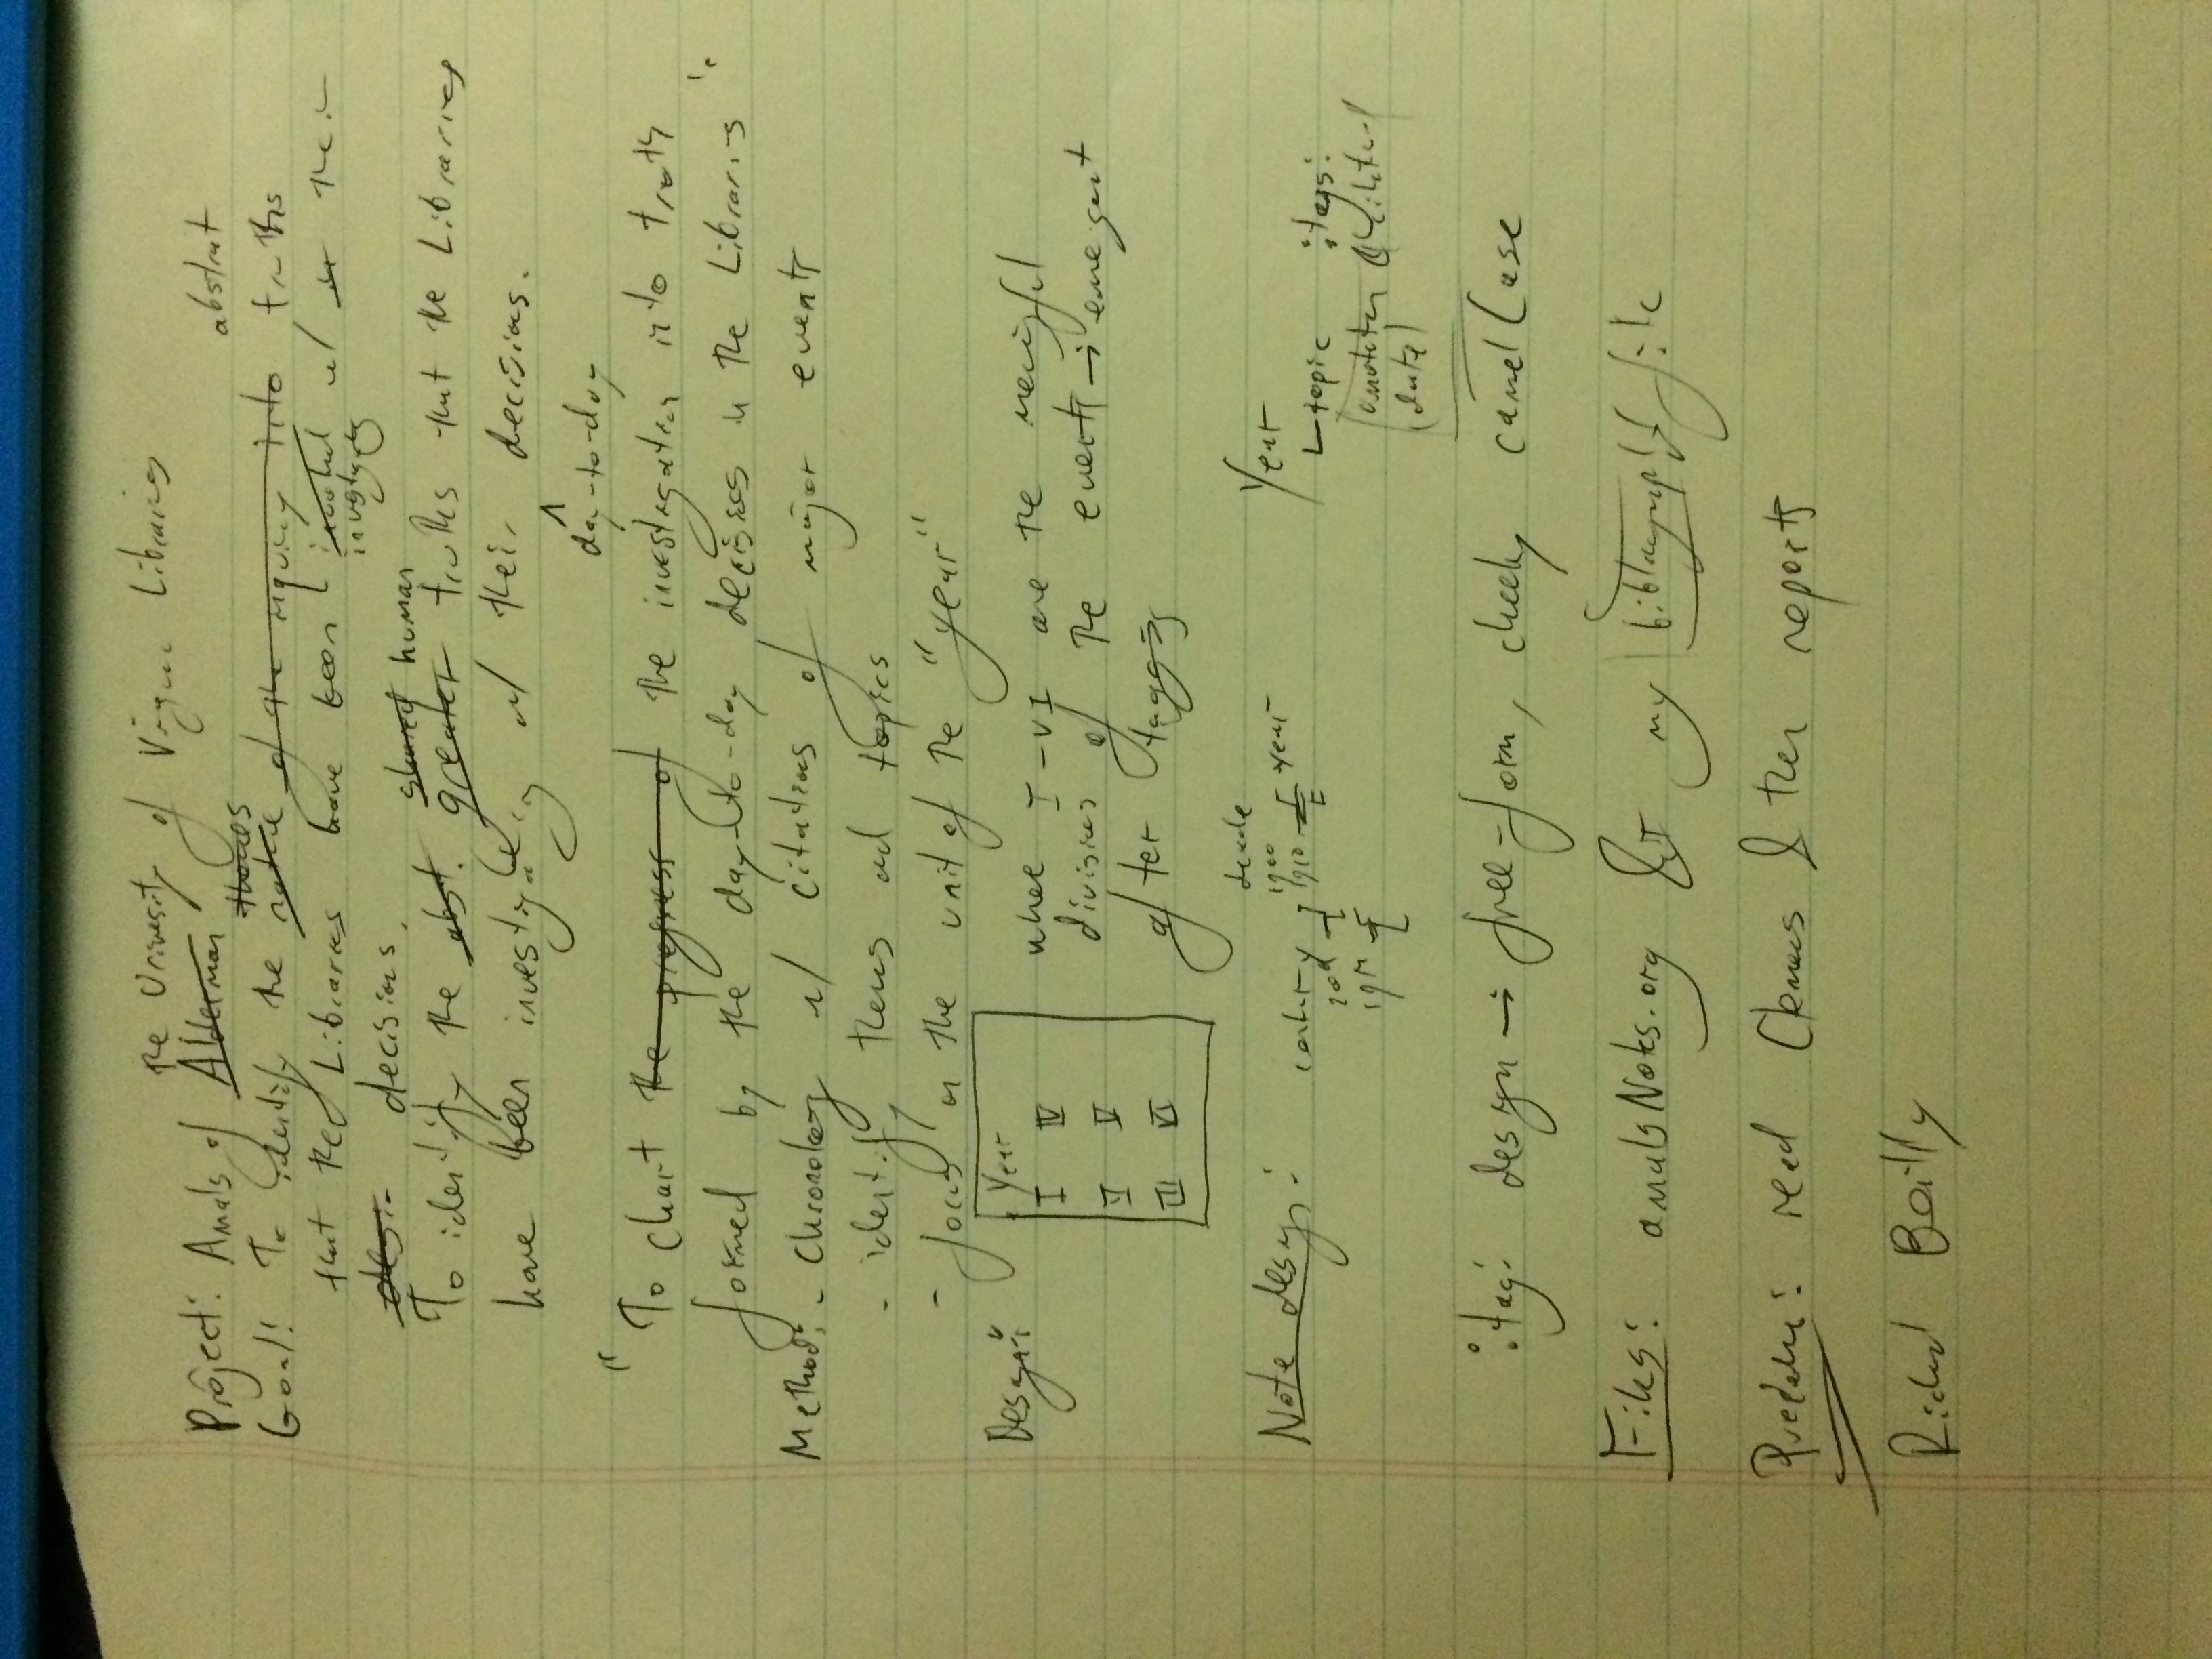 the University of Virginia Libraries
Project: Annals of Alderman
themes
abstract
Goal: To identify the nature of the inquiry into truths
that the Libraries have been involved w/ in their
investigating
design decisions.
shared human
To identify the abst. greater truths that the Libraries
have been investigating w/ their decisions.
^
day-to-day
"To chart the progress of the investigation into truth
formed by the day-to-day decisions in the Libraries"
Method: - Chronology w/ citations of major events
- identify themes and topics
- focus on the unit of the "year"
Design:
Year
I IV
II V
III VI
where I-VI are the meaningful
divisions of the events → emergent
after tagging
Note design:
decade
century
1900
1910
year
20th
19th
Year
topic :tags:
annotation
(date)
:tag: design → free-form, cheeky camelCase
Files: annalsNotes.org & my bibliography file
Procedure: read Clemons & then reports
Richard Beilly